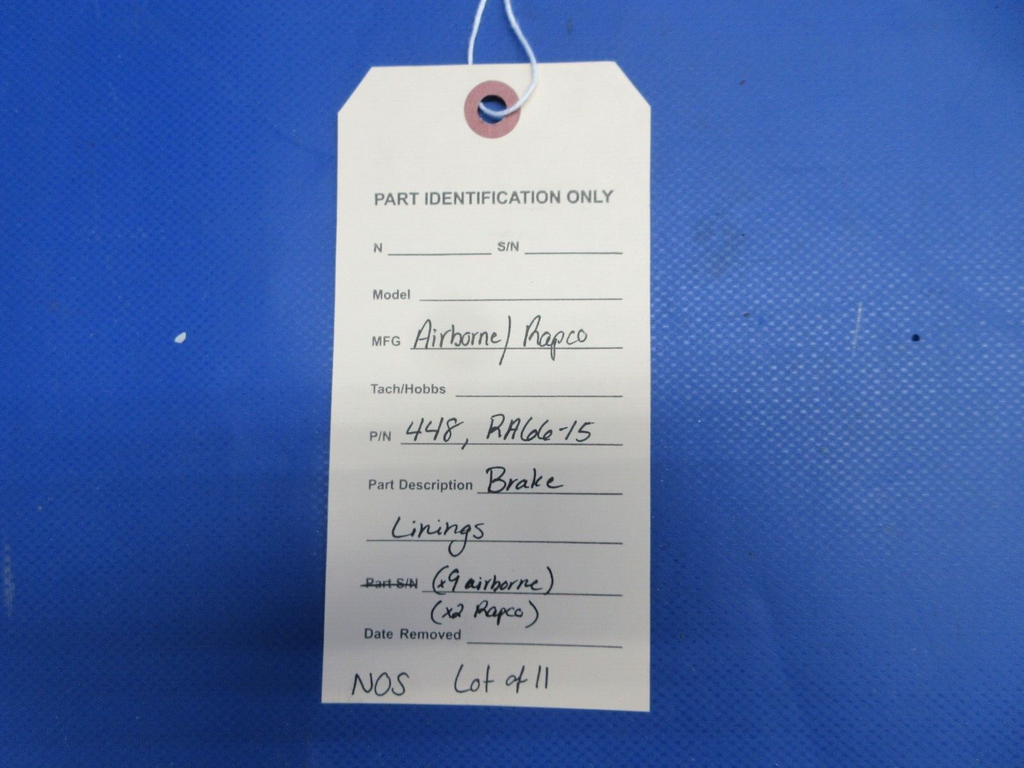 PART IDENTIFICATION ONLY
N S/N
Model
MFG Airborne/ Rapco
Tach/Hobbs
P/N 448, RA66-15
Part Description Brake
Linings
Part S/N (x9 airborne)
(x2 Rapco)
Date Removed
NOS Lot of 11